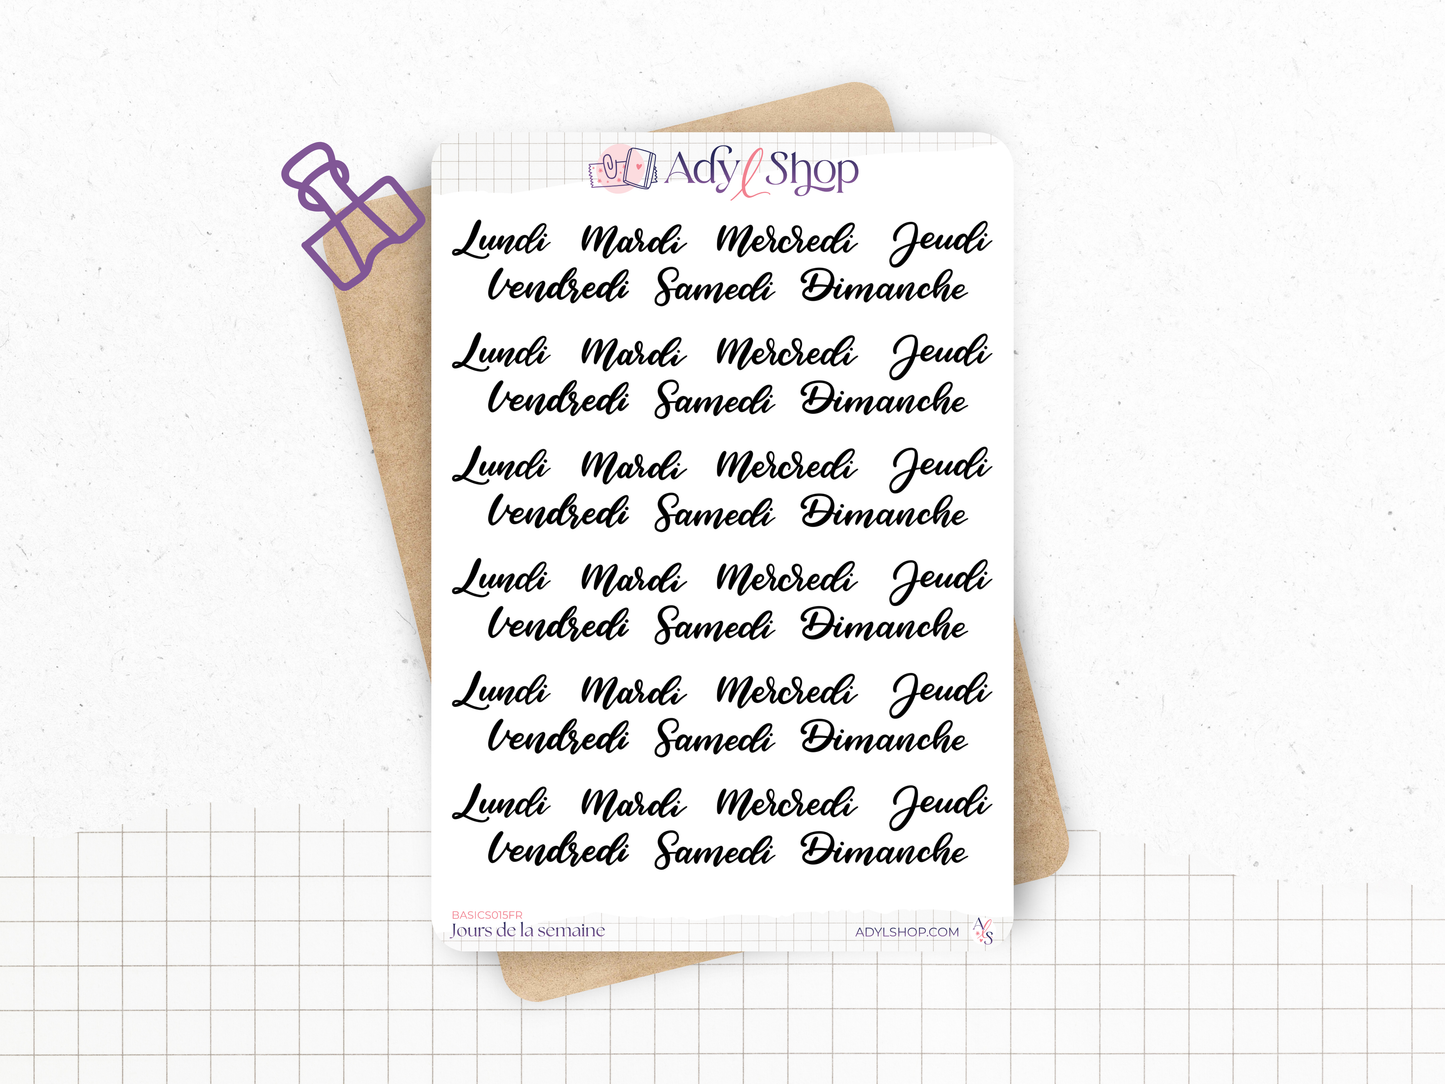 Ady l Shop
Lundi Mardi Mercredi Jeudi
Vendredi Samedi Dimanche
Lundi Mardi Mercredi Jeudi
Vendredi Samedi Dimanche
Lundi Mardi Mercredi Jeudi
Vendredi Samedi Dimanche
Lundi Mardi Mercredi Jeudi
Vendredi Samedi Dimanche
Lundi Mardi Mercredi Jeudi
Vendredi Samedi Dimanche
Lundi Mardi Mercredi Jeudi
Vendredi Samedi Dimanche
BASICS015FR
Jours de la semaine
ADYLSHOP.COM
AlS